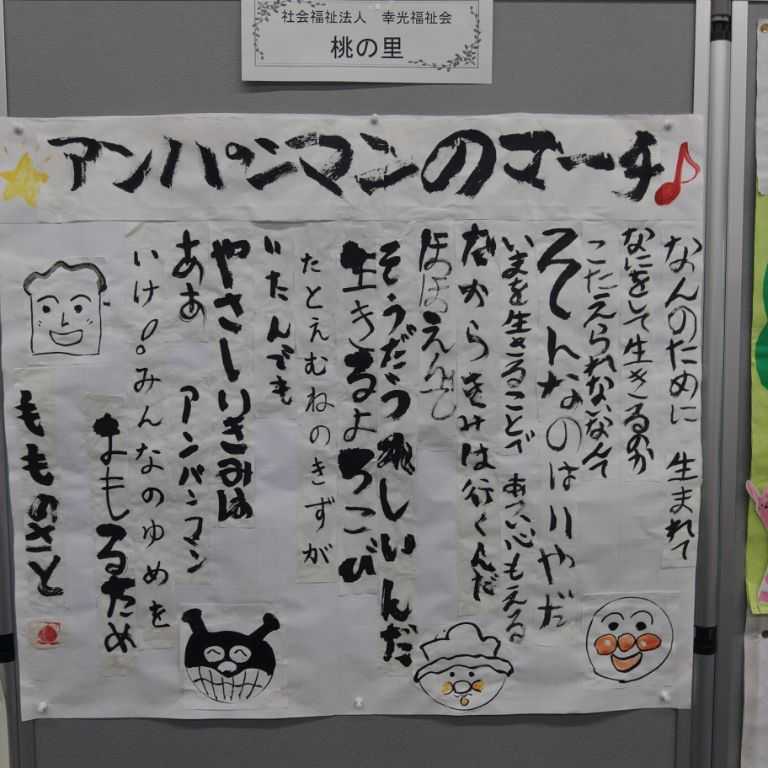 社会福祉法人 幸光福祉会
桃の里
アンパンマンのマーチ
なんのために 生まれて
なにをして生きるのか
こたえられないなんて
そんなのはいやだ
いまを生きることで あつい心もえる
だからきみは行くんだ
ほほえんで
そうだうれしいんだ
生きるよろこび
たとえむねのきずが
いたんでも
やさしいきみは
ああ アンパンマン
いけ!みんなのゆめを
まもるため
もものさと